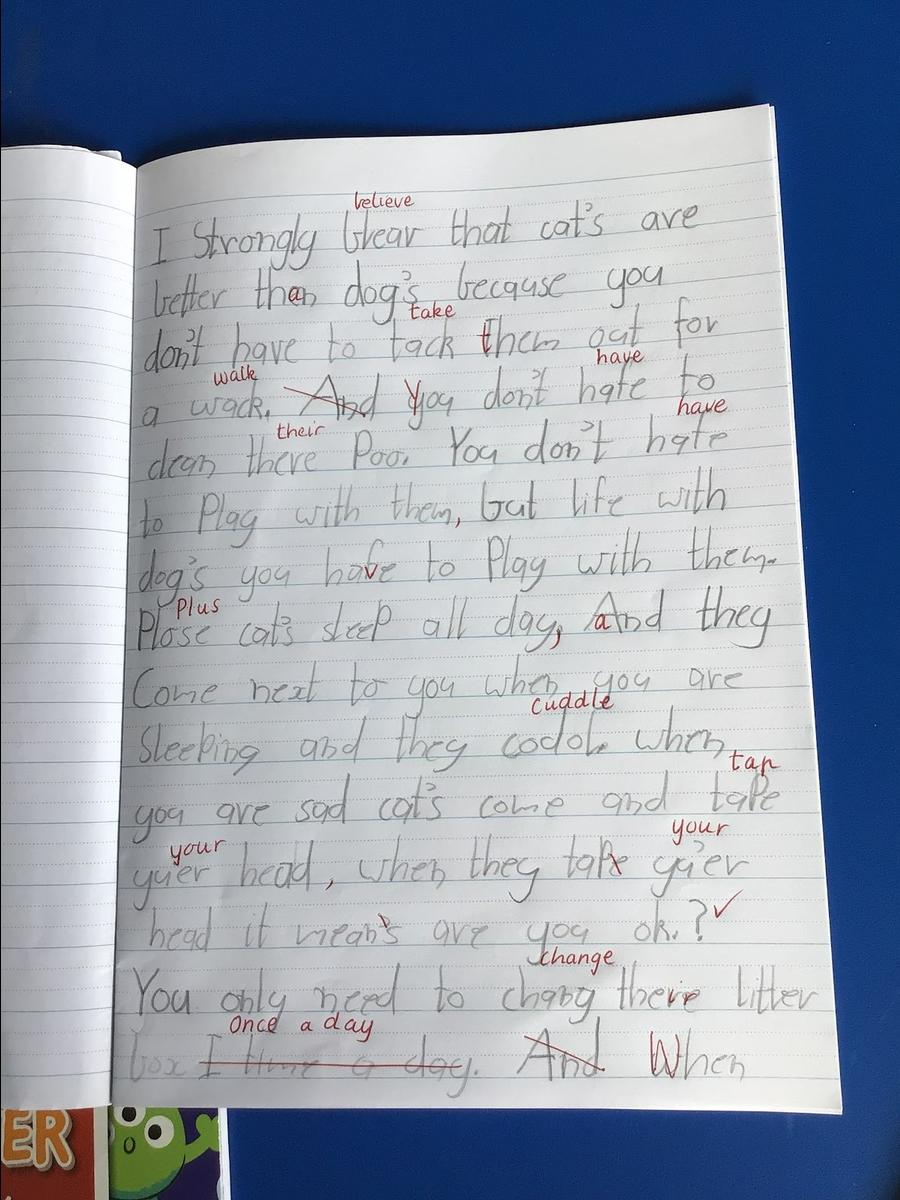 believe
I Strongly blear that cat's are
better than dog's because you
take
don't have to tack them out for
walk have
a wack. And You don't hafe to
their have
clean there Poo. You don't hafe
to Play with them, but life with
dog's you have to Play with them.
Plus
Plose cat's sleep all day, and they
Come next to you when you are
cuddle
Sleeping and they codole when
tap
you are sad cat's come and taPe
your your
yuer head, when they taPe yuer
head it mean's are you ok.? ✓
change
You only need to chang there litter
Once a day
box I time a day. And When
ER